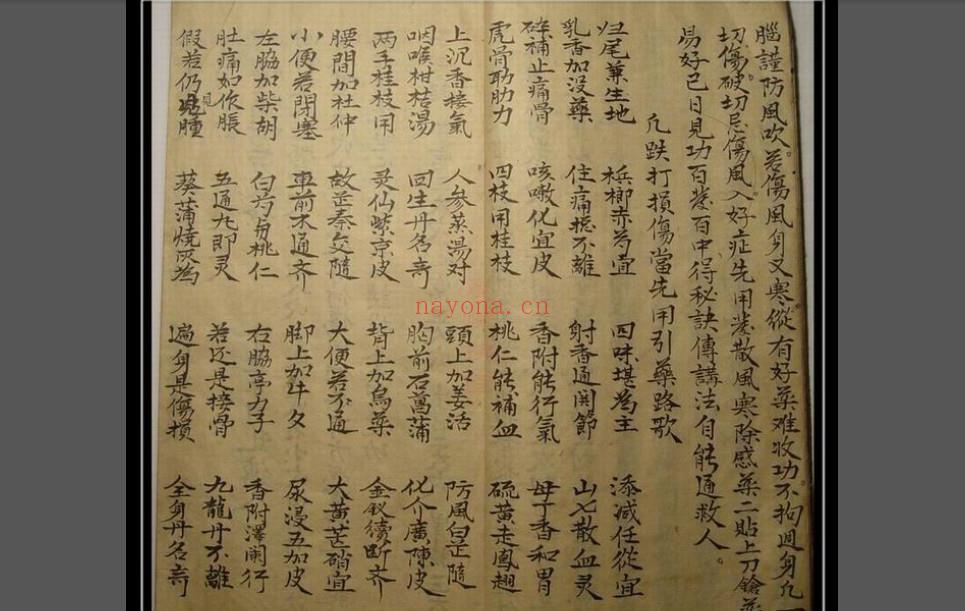 腦謹防風吹。若傷風身又寒。從有好藥难收功。不拘週身凡
切傷破切忌傷風入好症先用發散風寒除感藥二貼上刀鎗
易好已日見功百發百中得秘訣傳講法自能通救人。
凡跌打損傷當先用引藥路歌
归尾兼生地 梹榔赤芍宜 四味堪為主 添減任從宜
乳香加没藥 住痛揔不離 射香通関節 山七散血灵
砕補止痛骨 咳嗽化宜皮 香附能行氣 母丁香和胃
虎骨助肋力 四枝用桂枝 桃仁能補血 硫黄走鳳翅
上沉香接氣 人参蒸湯对 頭上加姜活 防風白芷隨
咽喉柑桔湯 回生丹名奇 胸前石菖蒲 化介廣陳皮
两手桂枝用 灵仙紫京皮 背上加烏藥 金釵續斷齐
腰間加杜仲 故芷秦交隨 大便若不通 大黄芒硝宜
小便若閉塞 車前木通齐 脚上加牛夕 尿浸五加皮
左脇加柴胡 白芍与桃仁 右脇亭力子 香附澤闌行
肚痛如作脹 五通丸即灵 若还是接骨 九龍丹不離
假若仍見腫 葵蒲燒灰為 遍身是傷損 全身丹名奇
nayona.cn